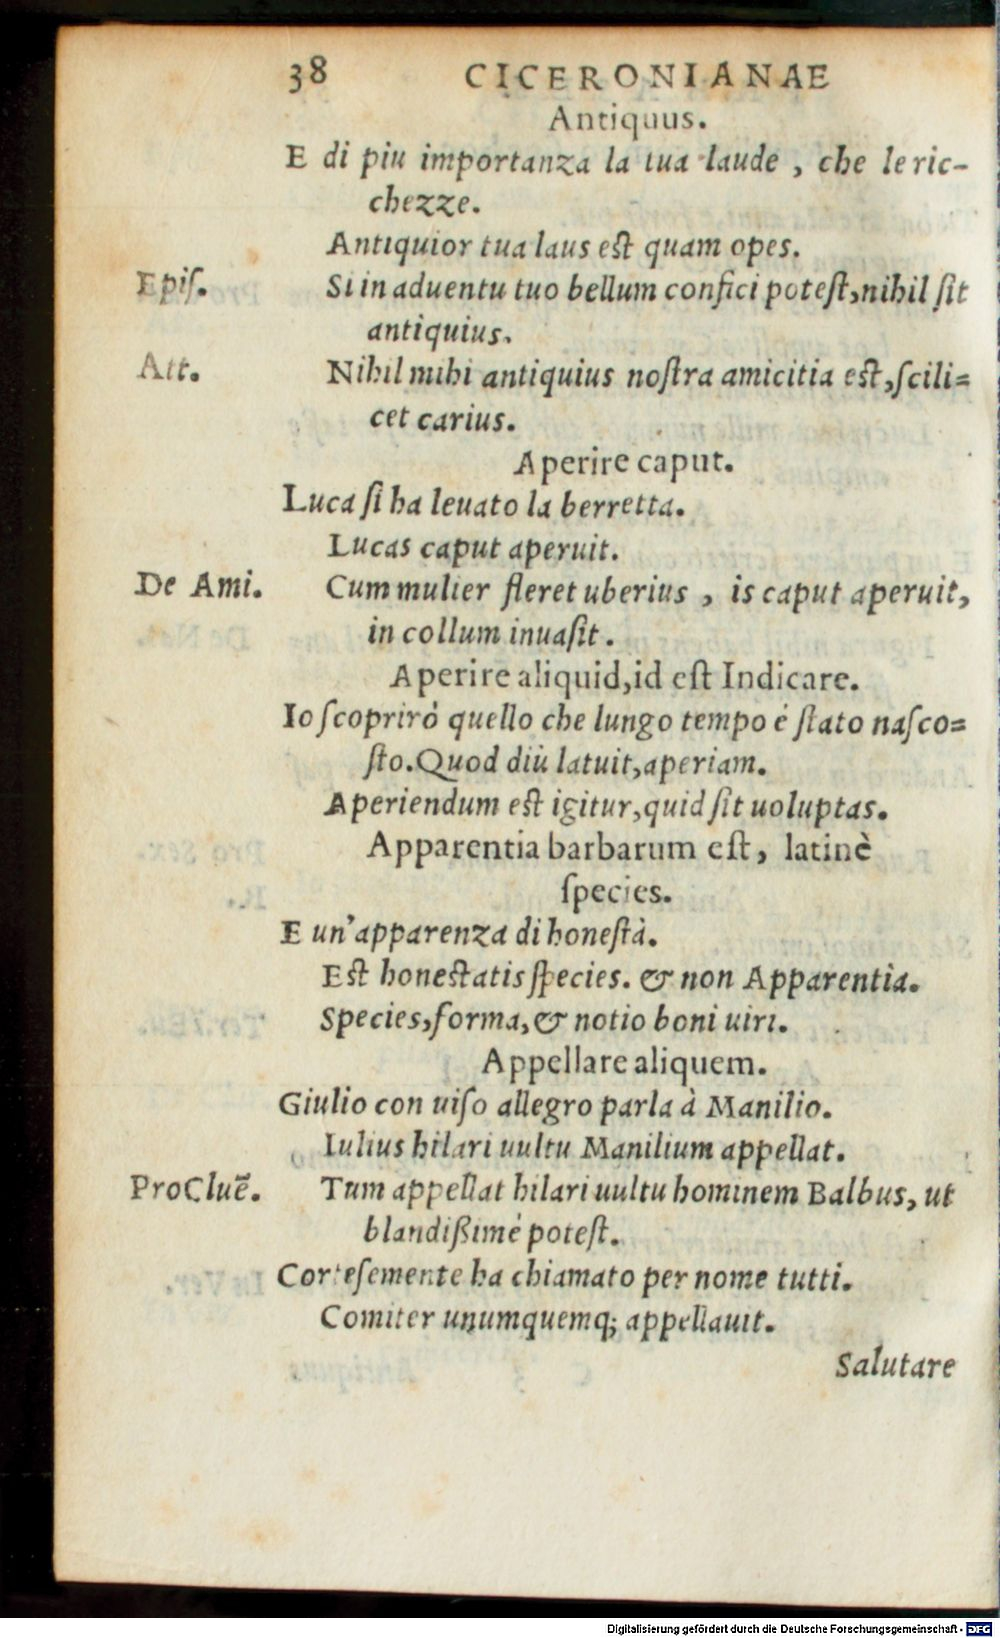 38 CICERONIANAE
Antiquus.
E di piu importanza la tua laude , che le ric-
chezze.
Antiquior tua laus est quam opes.
Epiſ. Si in aduentu tuo bellum confici poteſt, nihil ſit
antiquius.
Att. Nihil mihi antiquius noſtra amicitia est, ſcili=
cet carius.
Aperire caput.
Luca ſi ha leuato la berretta.
Lucas caput aperuit.
De Ami. Cum mulier fleret uberius , is caput aperuit,
in collum inuaſit .
Aperire aliquid, id eſt Indicare.
Io ſcoprirò quello che lungo tempo è ſtato naſco=
ſto. Quod diù latuit, aperiam.
Aperiendum est igitur, quid ſit uoluptas.
Apparentia barbarum eſt, latinè
ſpecies.
E un'apparenza di honeſtà.
Est honestatis ſpecies. & non Apparentia.
Species, forma, & notio boni uiri.
Appellare aliquem.
Giulio con uiſo allegro parla à Manilio.
Iulius hilari uultu Manilium appellat.
Pro Cluẽ. Tum appellat hilari uultu hominem Balbus, ut
blandißimè poteſt.
Corteſemente ha chiamato per nome tutti.
Comiter unumquemq; appellauit.
Salutare
Digitalisierung gefördert durch die Deutsche Forschungsgemeinschaft - DFG